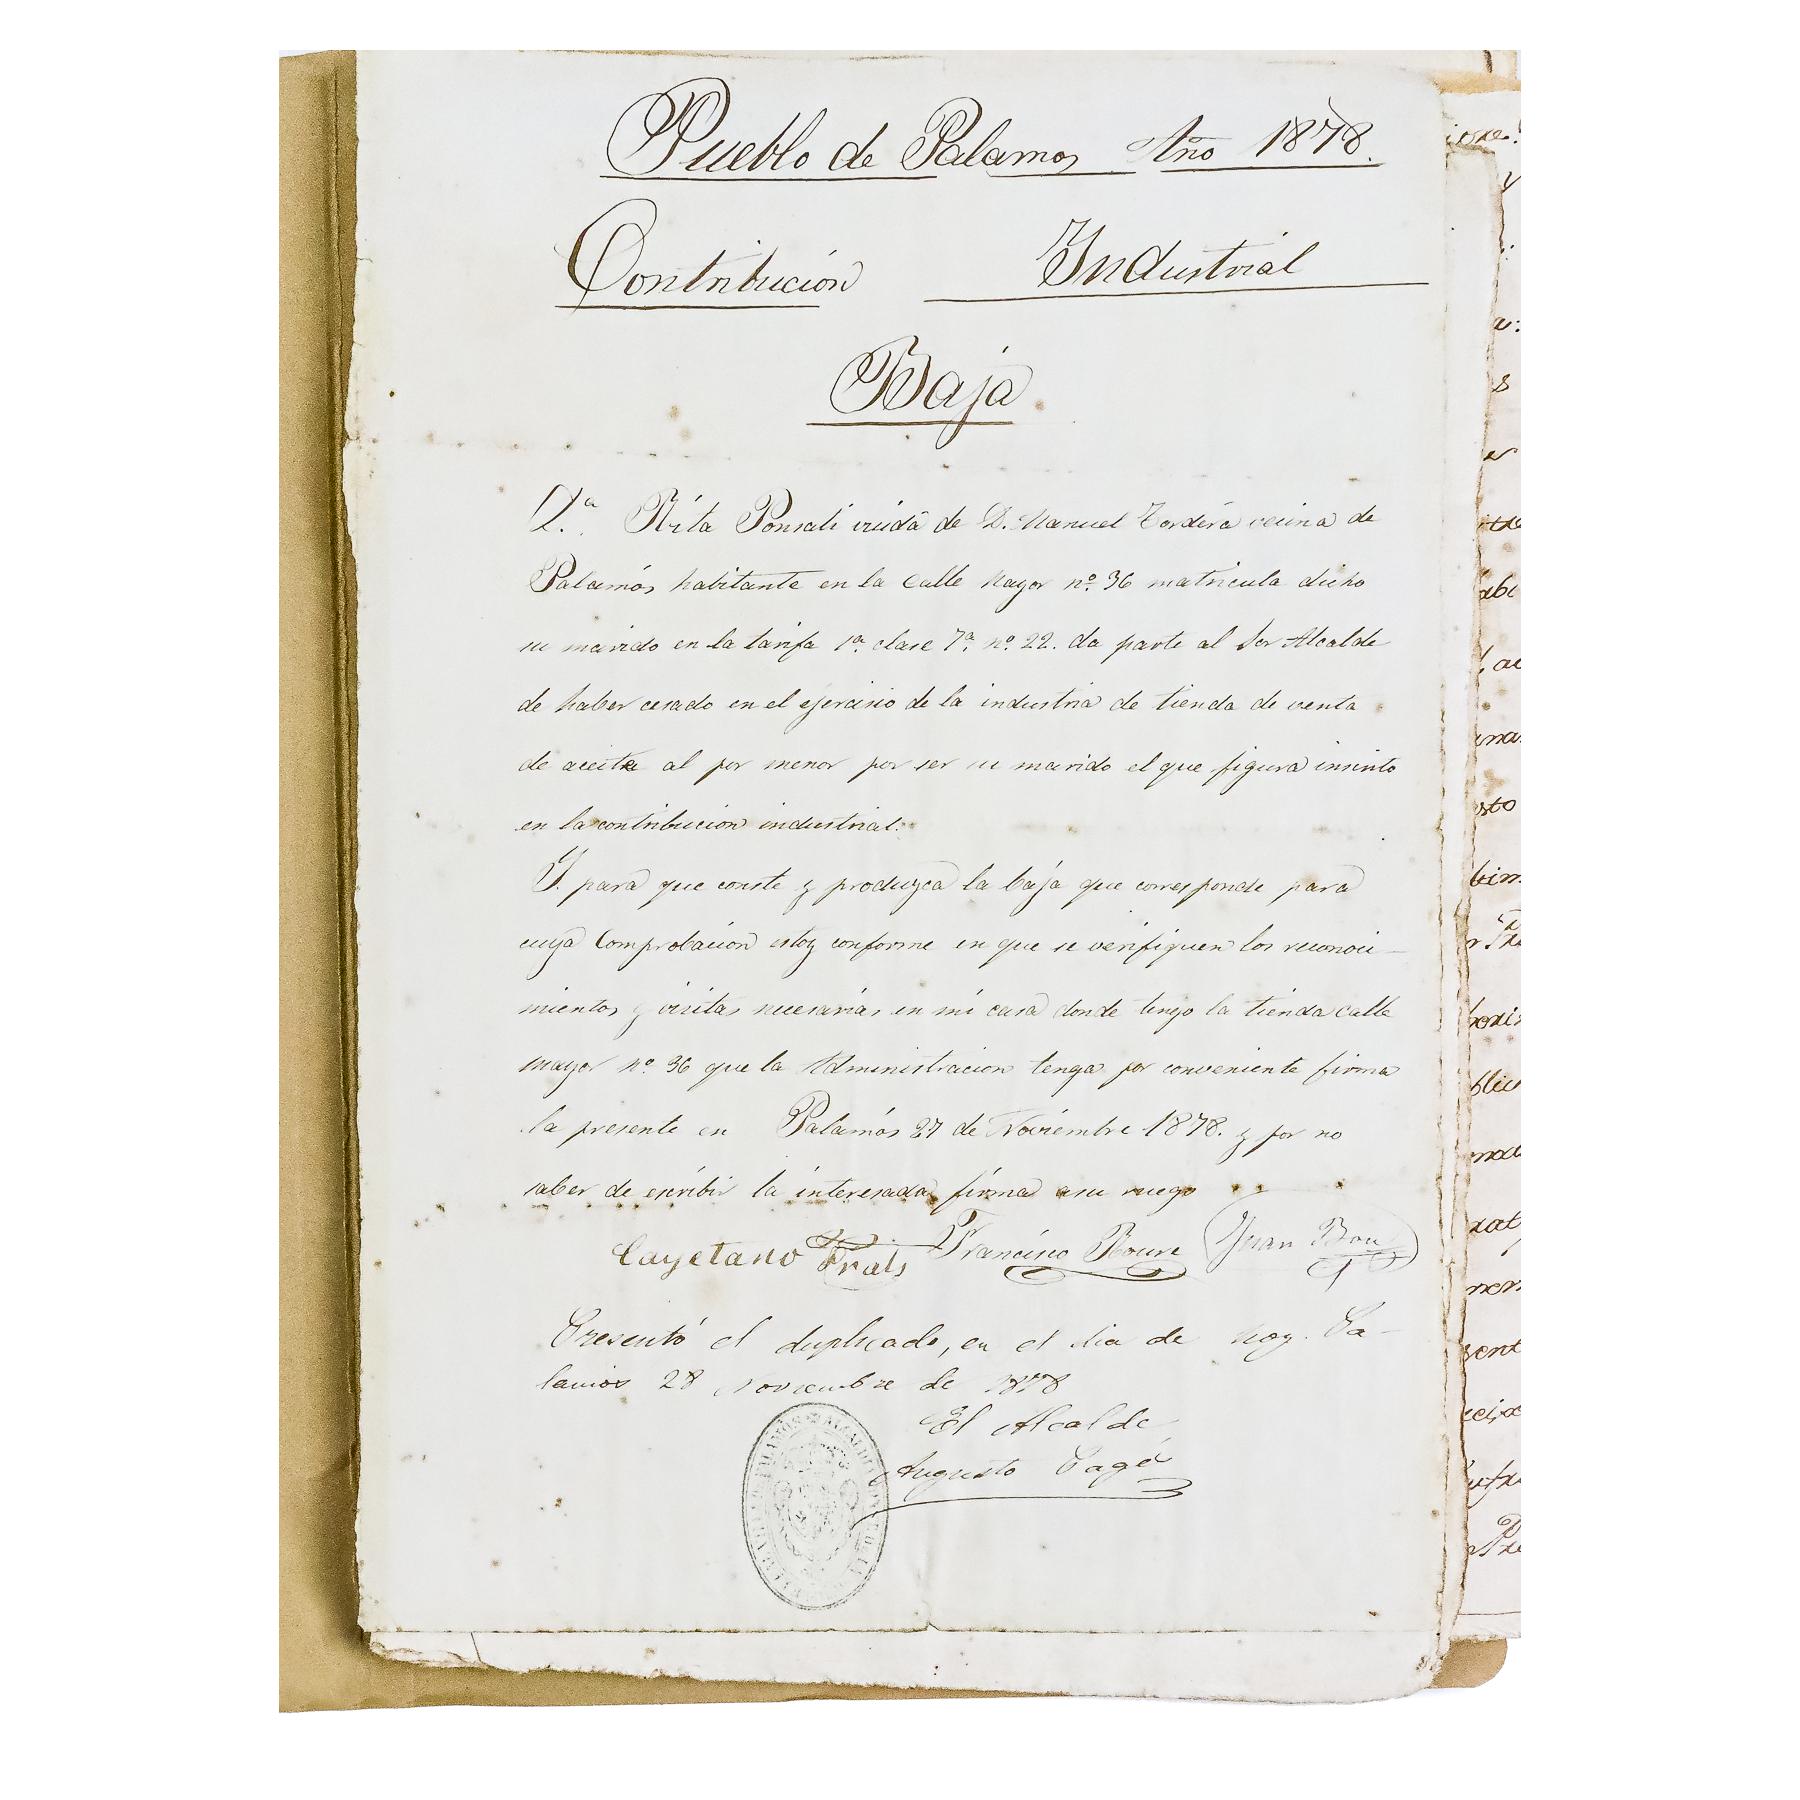 Pueblo de Palamos Año 1878.
Contribución Industrial
Baja
D.ª Rita Ponsati viuda de D. Manuel Tordera vecina de
Palamós habitante en la calle Mayor nº. 36 matricula dicho
su marido en la tarifa 1ª. clase 7ª. nº. 22. da parte al Sor Alcalde
de haber cesado en el ejercisio de la industria de tienda de venta
de aceite al por menor por ser su marido el que figura inscrito
en la contribucion industrial.
Y. para que conste y produzca la baja que corresponde para
cuya Comprobacion estoy conforme en que se verifiquen los reconoci-
mientos y visitas necesarias en mi casa donde tengo la tienda calle
mayor nº. 36 que la Administracion tenga por conveniente firma
la presente en Palamós 27 de Noviembre 1878. y por no
saber de escribir la interesada firma a su ruego
Cayetano Prats Francisco Roure Juan Bou
Presentó el duplicado, en el dia de hoy. Pa-
lamos 28 Noviembre de 1878
El Alcalde
Augusto Pagé
PALAMÓS